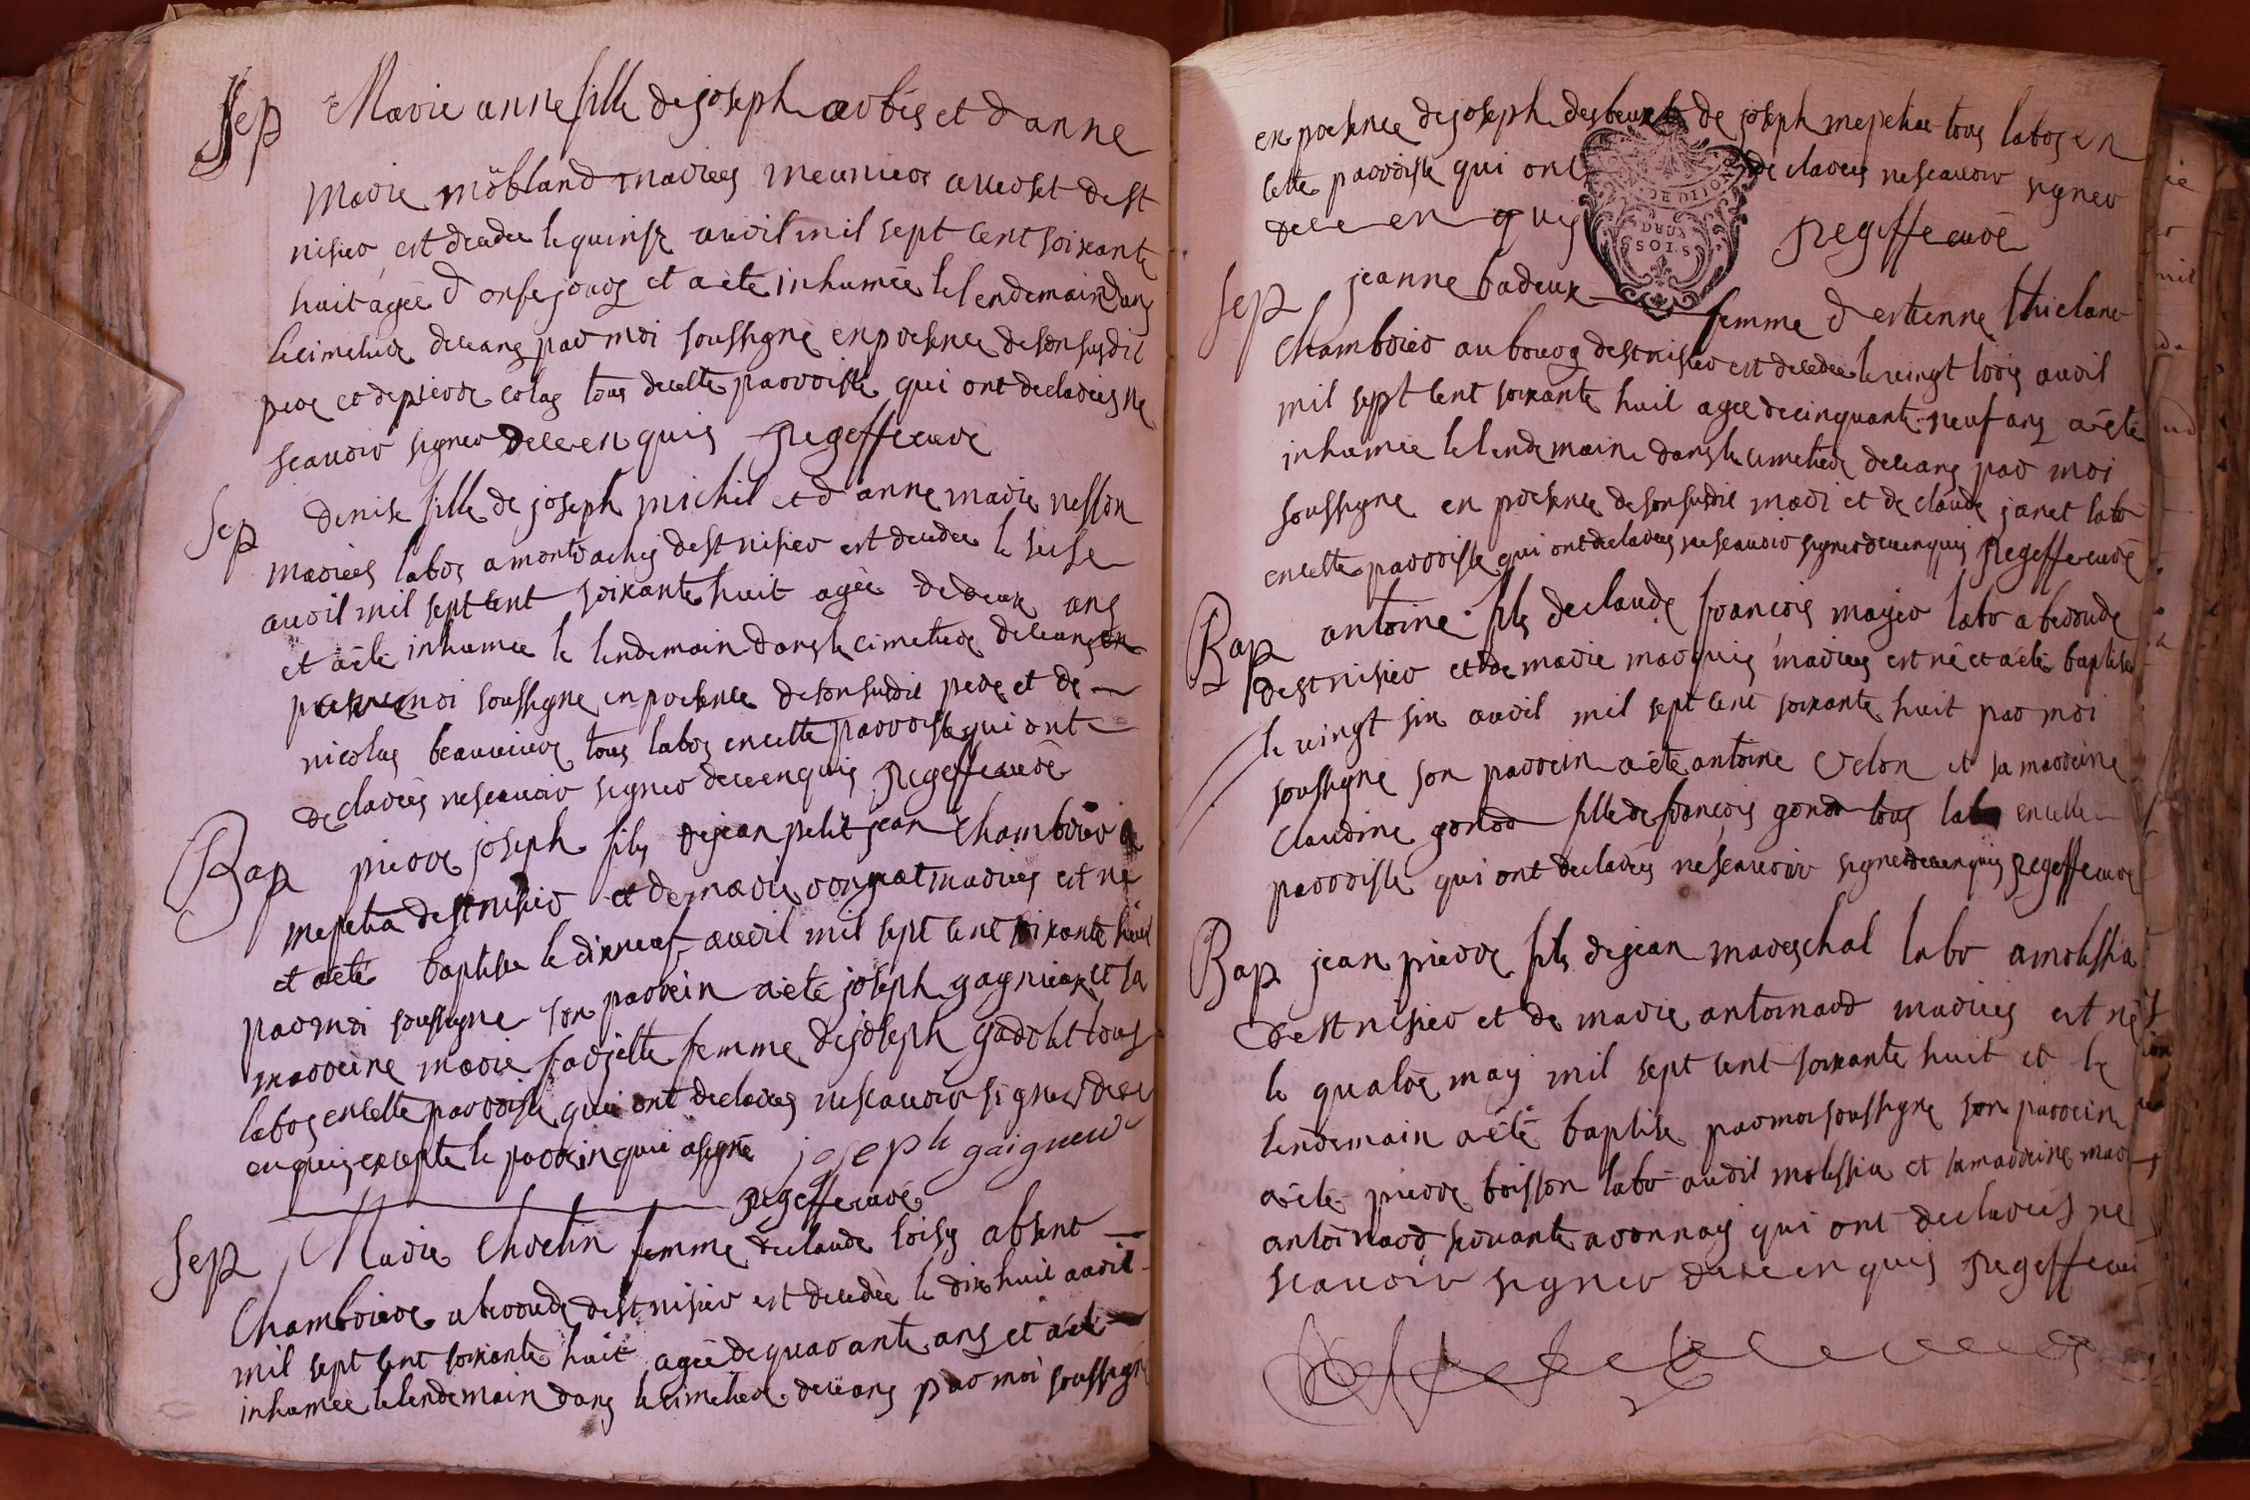 Sep Marie anne fille de joseph arbés et d'anne
marie mobland mariées meunier au dest
nisier est decedee le quinse avril mil sept cent soixante
huit agée d'onse jours et a eté inhumée le lendemain dans
le cimetiere de ceans par moi soussigné en presence de son susdit
pere et de pierre colas tous de cette parroisse qui ont declarées ne
scavoir signer de ce enquis
Sep denise fille de joseph michel et d'anne marie nesson
mariées labor a montrachis de st nisier est decedee le seise
avril mil sept cent soixante huit agée de deux ans
et a eté inhumee le lendemain dans le cimetiere de ceans
moi soussigne en presence de son susdit pere et de
nicolas beauvieux tous labor en cette parroisse qui ont
declarées ne scavoir signer de ce enquis
Bap pierre joseph fils de jean petit jean chambrier a
mepetia de st nisier et de marie mariées est né
et a eté baptise le dix neuf avril mil sept cent soixante huit
par moi soussigne son parrein a eté joseph gagnieux et sa
marreine marie farjette femme de joseph gadolet tous
labors en cette parroisse qui ont declarées ne scavoir signer de ce
enquis excepte le parrein qui a signé joseph gaigneur
Sep Marie chretin femme de claude loisy absent
chambriere a beroude de st nisier est decedée le dix huit avril
mil sept cent soixante huit agée de quarante ans et a eté
inhumee le lendemain dans le cimetiere de ceans par moi soussigné
en presence de joseph desbeux de joseph mepetia tous labors en
cette parroisse qui ont declarées ne scavoir signer
de ce enquis
Sep jeanne badoux femme d'estienne
chambrier au bourg de st nisier est decedee le vingt trois avril
mil sept cent soixante huit agée de cinquante neuf ans a eté
inhumée le lendemain dans le cimetiere de ceans par moi
soussigne en presence de son susdit mari et de claude janet labr
en cette parroisse qui ont declarées ne scavoir signer de ce enquis
Bap antoine fils de claude francois mayer labr a beroude
de st nisier et de marie marquis mariées est né et a eté baptise
le vingt six avril mil sept cent soixante huit par moi
soussigne son parrein a eté antoine velon et sa marreine
claudine gonod fille de françois gonod tous labr en cette
parroisse qui ont declarées ne scavoir signer de ce enquis
Bap jean pierre fils de jean mareschal labr a molissia
de st nisier et de marie antoinard mariées est né
le quatre may mil sept cent soixante huit et le
lendemain a été baptise par moi soussigne son parrein
a eté pierre boisson labr audit molissia et sa marreine marie
antoinard servante a ornnay qui ont declarées ne
scavoir signer de ce enquis